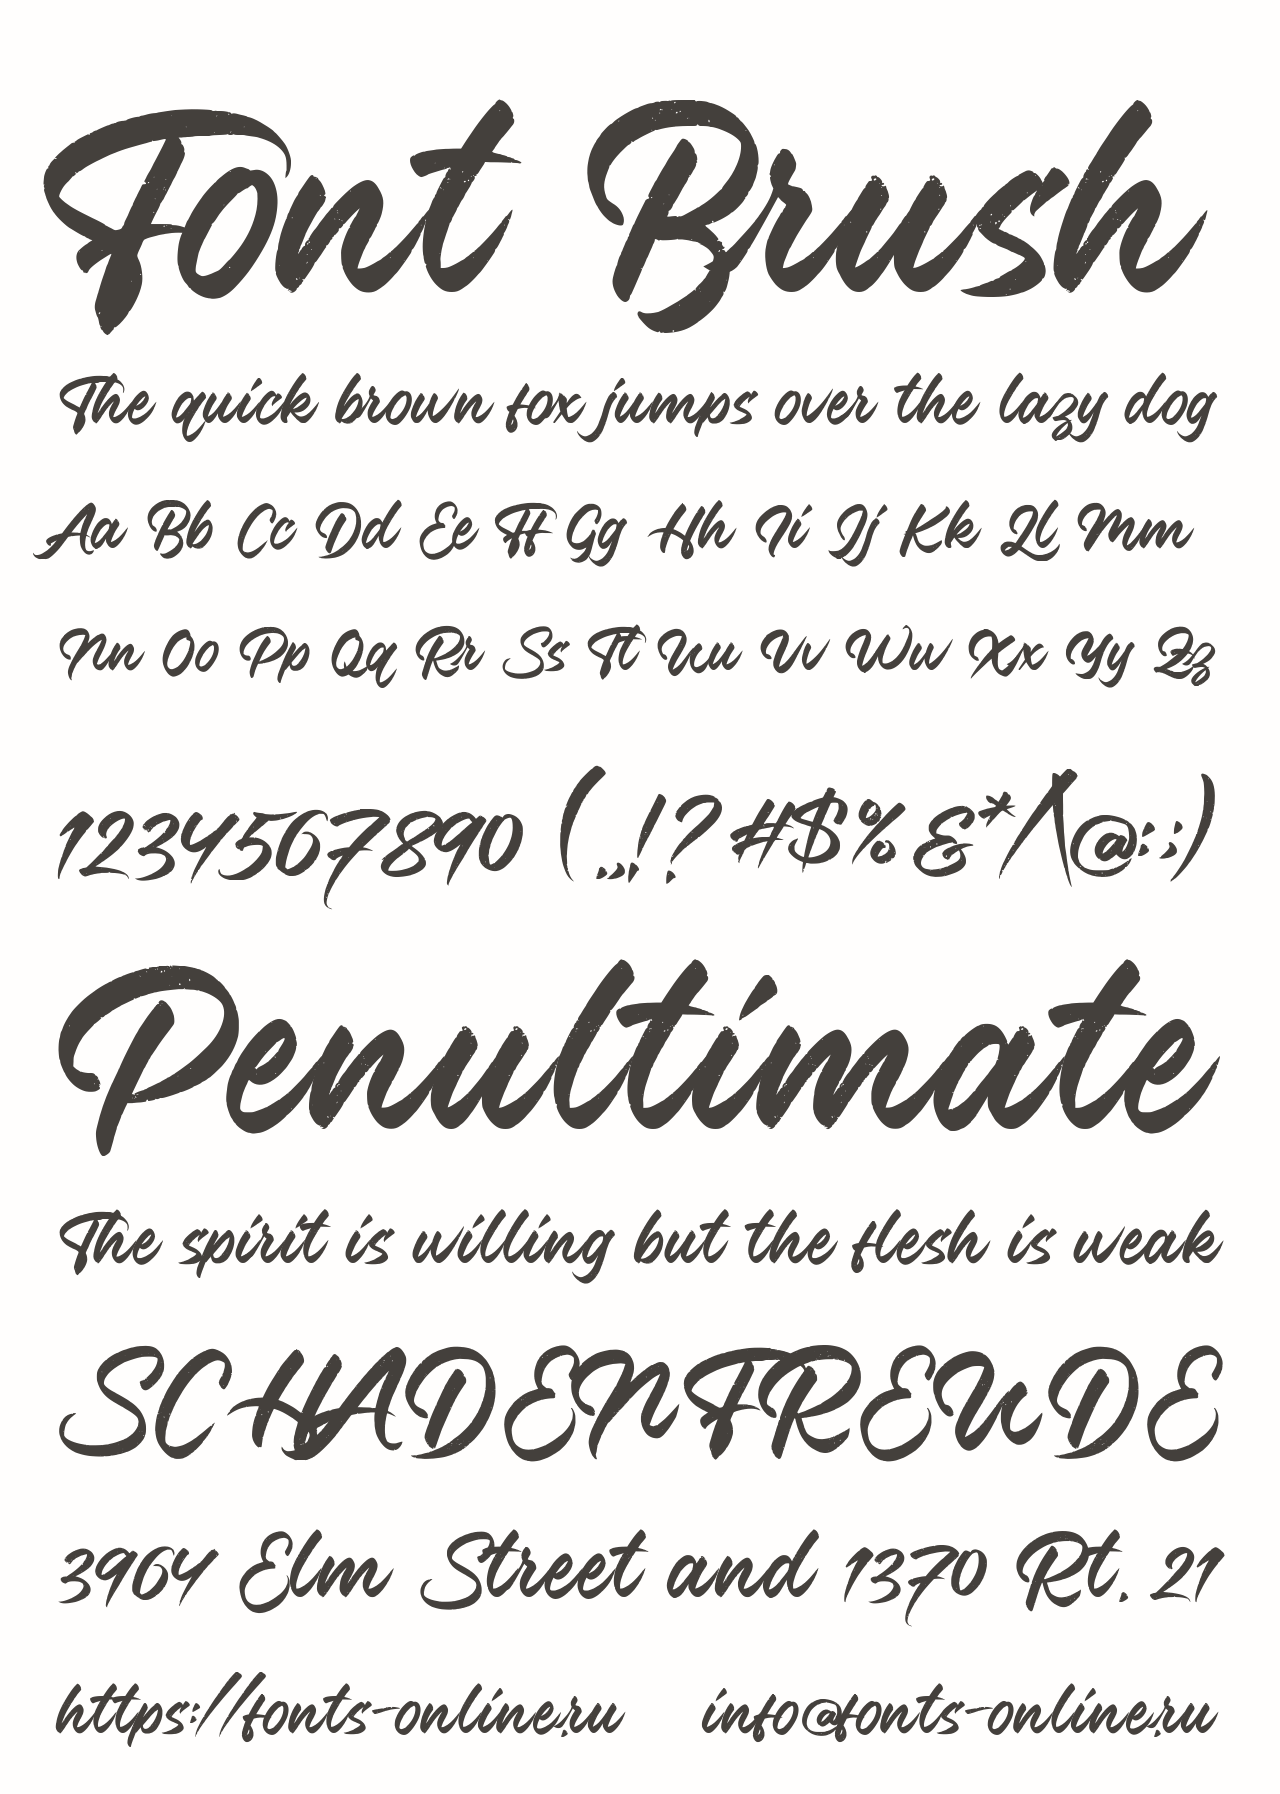 Font Brush
The quick brown fox jumps over the lazy dog
Aa Bb Cc Dd Ee Ff Gg Hh Ii Jj Kk Ll Mm
Nn Oo Pp Qq Rr Ss Tt Uu Vv Ww Xx Yy Zz
1234567890 (.,!? #$%&*/\@:;)
Penultimate
The spirit is willing but the flesh is weak
SCHADENFREUDE
3964 Elm Street and 1370 Rt. 21
https://fonts-online.ru info@fonts-online.ru